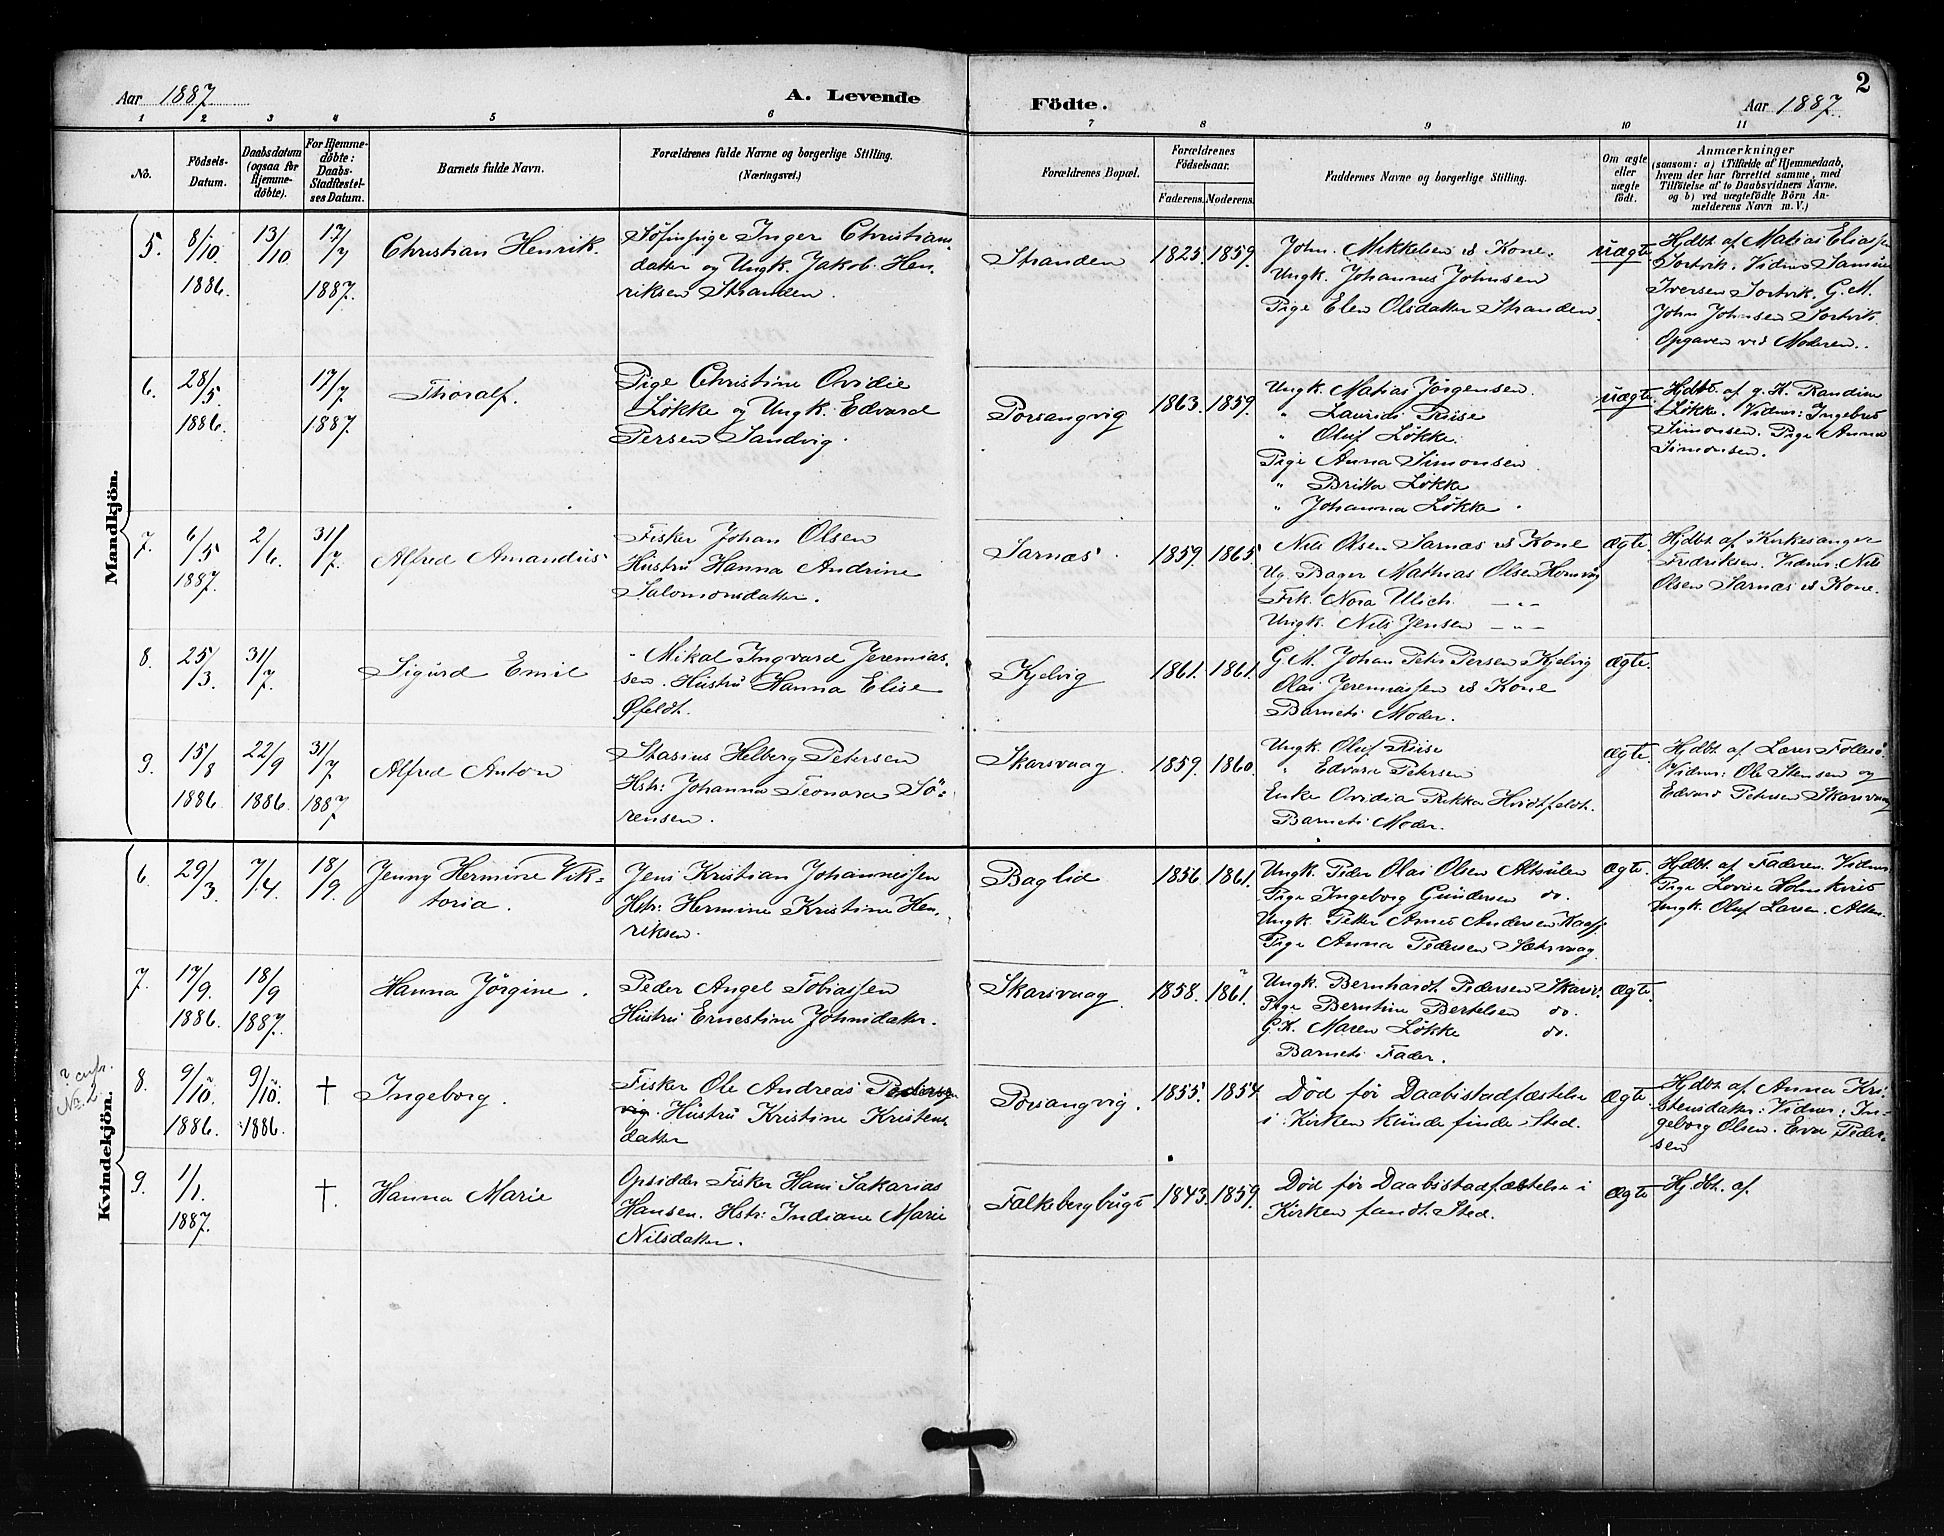 Aar 1887. A. Levende Födte. Aar 1887. 2
1 2 3 4 5 6 7 8 9 10 11
No.
Födsels-Datum.
Daabsdatum (ogsaa for Hjemmedöbte).
For Hjemmedöbte: Daabs-Stadfæstelses Datum.
Barnets fulde Navn.
Forældrenes fulde Navne og borgerlige Stilling.
(Næringsvei.)
Forældrenes Bopæl.
Forældrenes Födselsaar.
Faderens. Moderens.
Faddernes Navne og borgerlige Stilling.
Om ægte eller uægte födt.
Anmærkninger
(saasom: a) i Tilfælde af Hjemmedaab,
hvem der har forrettet samme, med
Tilföielse af to Daabsvidners Navne,
og b) ved uægtefödte Börn An-
melderens Navn m. V.)
Mandkjön.
5. 8/10 1886. 13/10 17/7 1887. Christian Henrik.
Inger Christians
datter og Ungk. Jakob Hen
riksen Stranden.
Stranden 1825. 1859.
John Mikkelsen & Kone.
Ungk. Johannes Johnsen
Pige Elen Olsdatter Stranden.
uægte
Hjdbt. af Matias Eliassen
Sortvik. Vidner Samuel
Iversen Sortvik. G.M.
John Johnsen Sortvik.
Opgaven ved Moderen.
6. 28/5 1886. 17/7 1887. Thoralf.
Pige Christine Ovidie
Løkke og Ungk. Edvard
Persen Sandvig.
Porsangvig 1863. 1859.
Ungk. Matias Jørgensen.
" Laurids Riise
" Oluf Løkke.
Pige Anna Simonsen
" Britta Løkke
" Johanna Løkke.
uægte.
Hjdbt. af g. K. Randine
Løkke. Vidner: Ingebret
Simonsen. Pige Anna
Simonsen.
7. 6/5 1887. 2/6. 31/7. Alfred Amandus
Fisker Johan Olsen
Hustru Hanna Andrine
Salomonsdatter.
Sarnæs. 1859. 1865.
Nils Olsen Sarnæs & Kone
Ug. Bager Mathias Olsen Honvåg
Frk. Nora Ulich — " —
Ungk. Nils Jensen — " —
ægte.
Hjdbt. af Kirkesanger
Fredriksen. Vidner: Nils
Olsen Sarnæs & Kone.
8. 25/3. 31/7. Sigurd Emil
Mikal Ingvard Jeremias-
sen. Hustru Hanna Elise
Øfeldt.
Kjelvig 1861. 1861.
G.M. Johan Peter Persen Kjelvig
Olai Jeremiassen & Kone
Barnets Moder.
ægte.
9. 15/8 1886. 22/9 1886. 31/7 1887 Alfred Anton
Stasius Helberg Petersen
Hstr: Johanna Leonora Sö-
rensen.
Skarsvaag. 1859. 1860.
Ungk. Oluf Riise
" Edvard Petersen
Enke Ovidia Rikka Hvidtfeldt.
Barnets Moder.
ægte.
Hjdbt. af Lærer Follesö.
Vidner: Ole Stensen og
Edvard Petersen Skarsvaag
Kvindekjön.
6. 29/3. 7/4. 18/9. Jenny Hermine Vik-
toria.
Jens Kristian Johannessen
Hstr: Hermine Kristine Hen-
riksen.
Baglid 1856. 1861.
Ungk. Peder Olai Olsen Altsulen
Pige Ingeborg Gundersen do.
Ungk. Petter Arnt Andersen
Pige Anna Pedersen
ægte.
Hjdbt. af Faderen. Vidner
Pige Lovise Holmkvist
Ungk. Oluf Larsen. Alten.
7. 17/9. 1886. 18/9 1887. Hanna Jörgine.
Peder Angel Tobiassen
Hustru Ernestine Johnsdatter.
Skarsvaag. 1858. 1861. ?
Ungk. Bernhardt Pedersen Skarsv.
Pige Berntine Bertelsen do.
G.K. Maren Løkke do.
Barnets Fader.
ægte.
? cnfr. No. 2
8. 9/10. 1886. 9/10. 1886. † Ingeborg.
Fisker Ole Andreas
Hustru Kristine Kristens
datter
Porsangvig. 1855. 1854
Død før Daabsstadfæstelse
i Kirken kunde finde Sted.
ægte
Hjdbt af Anna Kri-
stensdatter: Vidner: In-
geborg Olsen. Eva Peder-
sen
9. 1/1. 1887. †. Hanna Marie
Opsidder Fisker Hans Sakarias
Hansen. Hstr: Indiane Marie
Nilsdatter.
Falkebergbugt 1843. 1859.
Død før Daabsstadfæstelse i
Kirken fandt Sted.
ægte
Hj.dbt. af